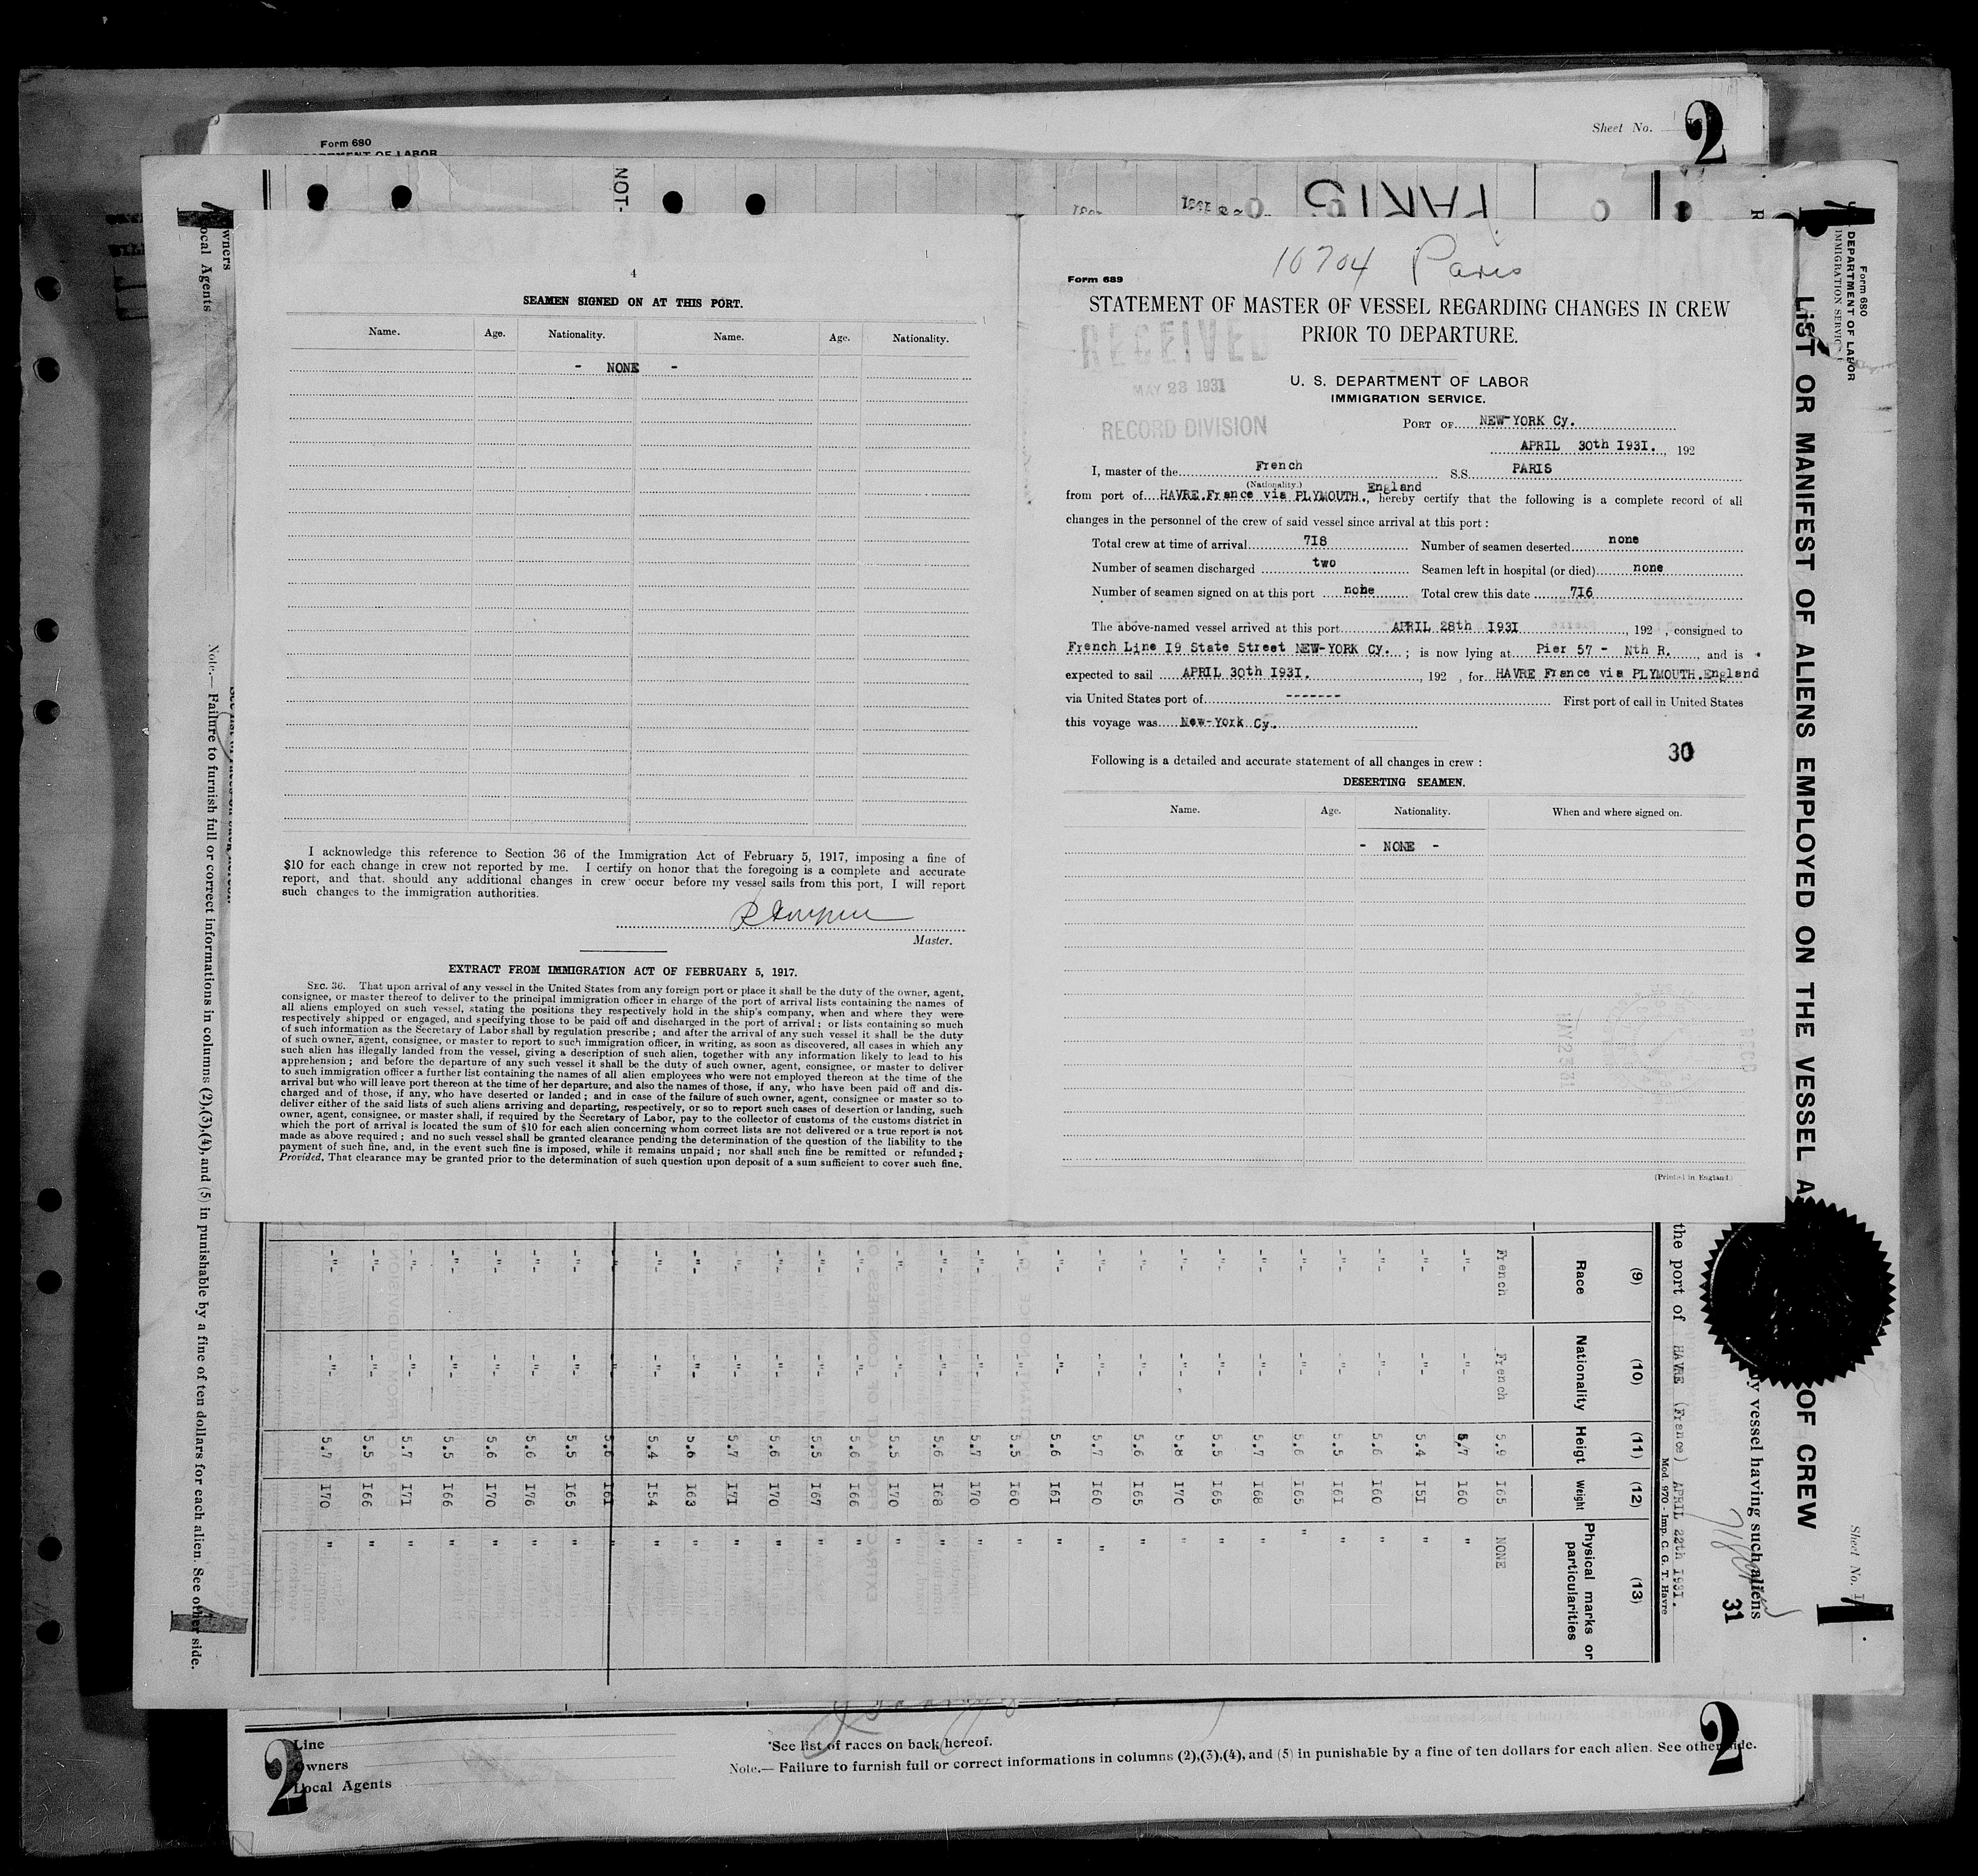 Form 680
DEPARTMENT OF LABOR
Sheet No.
2
NOT-
PARIS
Owners
Local Agents
4
SEAMEN SIGNED ON AT THIS PORT.
Name. Age. Nationality. Name. Age. Nationality.
- NONE -
I acknowledge this reference to Section 36 of the Immigration Act of February 5, 1917, imposing a fine of
$10 for each change in crew not reported by me. I certify on honor that the foregoing is a complete and accurate
report, and that. should any additional changes in crew occur before my vessel sails from this port, I will report
such changes to the immigration authorities.
Master.
EXTRACT FROM IMMIGRATION ACT OF FEBRUARY 5, 1917.
SEC. 36. That upon arrival of any vessel in the United States from any foreign port or place it shall be the duty of the owner, agent,
consignee, or master thereof to deliver to the principal immigration officer in charge of the port of arrival lists containing the names of
all aliens employed on such vessel, stating the positions they respectively hold in the ship's company, when and where they were
respectively shipped or engaged, and specifying those to be paid off and discharged in the port of arrival; or lists containing so much
of such information as the Secretary of Labor shall by regulation prescribe; and after the arrival of any such vessel it shall be the duty
of such owner, agent, consignee, or master to report to such immigration officer, in writing, as soon as discovered, all cases in which any
such alien has illegally landed from the vessel, giving a description of such alien, together with any information likely to lead to his
apprehension; and before the departure of any such vessel it shall be the duty of such owner, agent, consignee, or master to deliver
to such immigration officer a further list containing the names of all alien employees who were not employed thereon at the time of the
arrival but who will leave port thereon at the time of her departure, and also the names of those, if any, who have been paid off and dis-
charged and of those, if any, who have deserted or landed; and in case of the failure of such owner, agent, consignee or master so to
deliver either of the said lists of such aliens arriving and departing, respectively, or so to report such cases of desertion or landing, such
owner, agent, consignee, or master shall, if required by the Secretary of Labor, pay to the collector of customs of the customs district in
which the port of arrival is located the sum of $10 for each alien concerning whom correct lists are not delivered or a true report is not
made as above required; and no such vessel shall be granted clearance pending the determination of the question of the liability to the
payment of such fine, and, in the event such fine is imposed, while it remains unpaid; nor shall such fine be remitted or refunded;
Provided. That clearance may be granted prior to the determination of such question upon deposit of a sum sufficient to cover such fine.
10704 Paris
Form 689
STATEMENT OF MASTER OF VESSEL REGARDING CHANGES IN CREW
PRIOR TO DEPARTURE.
RECEIVED
MAY 23 1931
RECORD DIVISION
U. S. DEPARTMENT OF LABOR
IMMIGRATION SERVICE.
PORT OF NEW-YORK Cy.
APRIL 30th I93I. , 192
I, master of the French S.S. PARIS
(Nationality.)
from port of HAVRE.France via PLYMOUTH. England, hereby certify that the following is a complete record of all
changes in the personnel of the crew of said vessel since arrival at this port:
Total crew at time of arrival 7I8 Number of seamen deserted none
Number of seamen discharged two Seamen left in hospital (or died) none
Number of seamen signed on at this port none Total crew this date 7I6
The above-named vessel arrived at this port APRIL 28th I93I , 192 , consigned to
French Line I9 State Street NEW-YORK Cy. ; is now lying at Pier 57 - Nth R. , and is
expected to sail APRIL 30th I93I. , 192 , for HAVRE France via PLYMOUTH.England
via United States port of ------- First port of call in United States
this voyage was New-York Cy.
30
Following is a detailed and accurate statement of all changes in crew:
DESERTING SEAMEN.
Name. Age. Nationality. When and where signed on.
- NONE -
(Printed in England.)
Form 680
U. S. DEPARTMENT OF LABOR
IMMIGRATION SERVICE
LIST OR MANIFEST OF ALIENS EMPLOYED ON THE VESSEL AS
OF CREW
Sheet No. 1
vessel having such aliens
31
the port of HAVRE (France) APRIL 22th I93I.
Mod. 970 - Imp. C. G. T. Havre
(9) (10) (11) (12) (13)
Race Nationality Heigt Weight Physical marks or particularities
French French 5.9 I65 NONE
-"- -"- 5.7 I60 "
-"- -"- 5.4 I5I "
-"- -"- 5.6 I60 "
-"- -"- 5.5 I6I "
-"- -"- 5.6 I65 "
-"- -"- 5.7 I68 "
-"- -"- 5.5 I65 "
-"- -"- 5.8 I70 "
-"- -"- 5.6 I65 "
-"- -"- 5.7 I60 "
-"- -"- 5.6 I6I "
-"- -"- 5.5 I60 "
-"- -"- 5.7 I70 "
-"- -"- 5.6 I68 "
-"- -"- 5.5 I70 "
-"- -"- 5.6 I66 "
-"- -"- 5.5 I67 "
-"- -"- 5.6 I70 "
-"- -"- 5.7 I7I "
-"- -"- 5.6 I63 "
-"- -"- 5.4 I54 "
-"- -"- 5.6 I6I "
-"- -"- 5.5 I65 "
-"- -"- 5.6 I76 "
-"- -"- 5.6 I70 "
-"- -"- 5.5 I66 "
-"- -"- 5.7 I7I "
-"- -"- 5.5 I66 "
-"- -"- 5.7 I70 "
Note.— Failure to furnish full or correct informations in columns (2),(3),(4), and (5) in punishable by a fine of ten dollars for each alien. See other side.
Line
Owners
Local Agents
2
*See list of races on back hereof.
Note.— Failure to furnish full or correct informations in columns (2),(3),(4), and (5) in punishable by a fine of ten dollars for each alien. See other side.
2